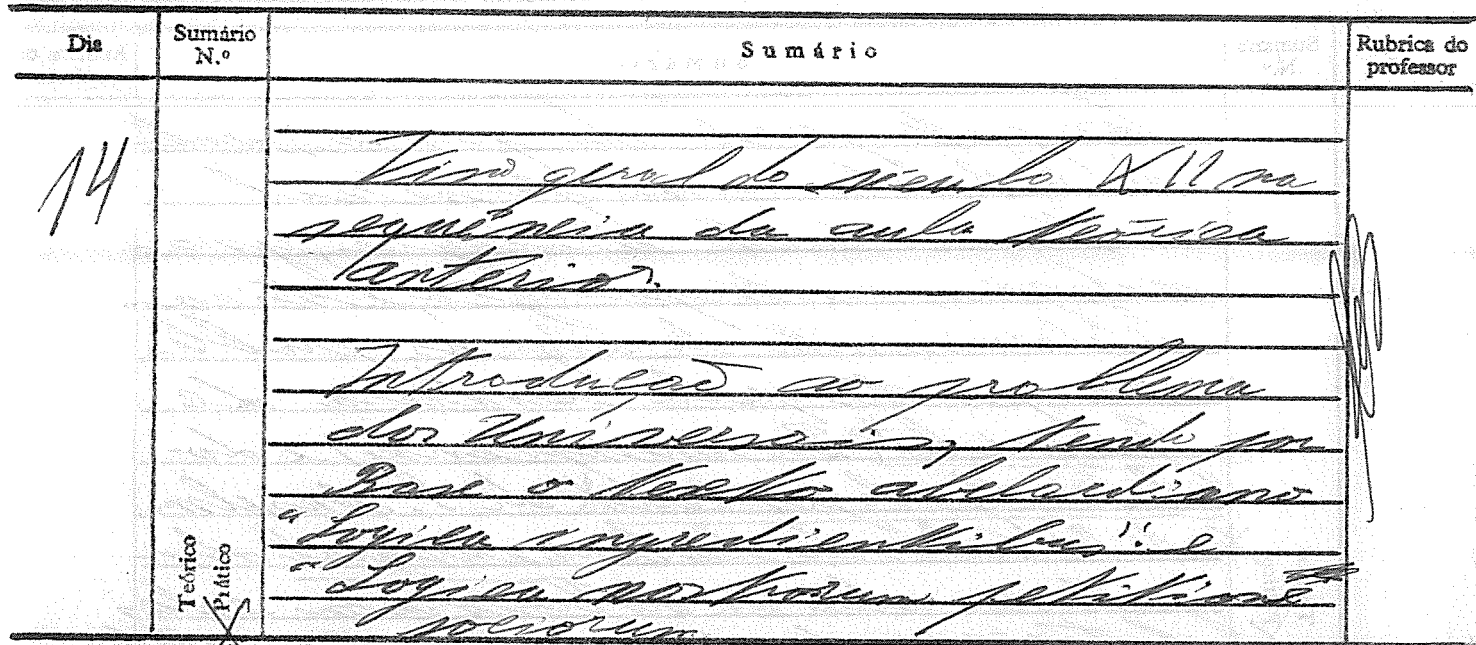 Dia
Sumário N.º
Sumário
Rubrica do professor
14
Visão geral do século XII na
sequência da aula teórica
anterior.
Introdução ao problema
dos Universais, tendo por
Base o texto abelardiano
"Logica ingredientibus" e
"Logica nostrorum petitione
sociorum
Teórico
Prático
X